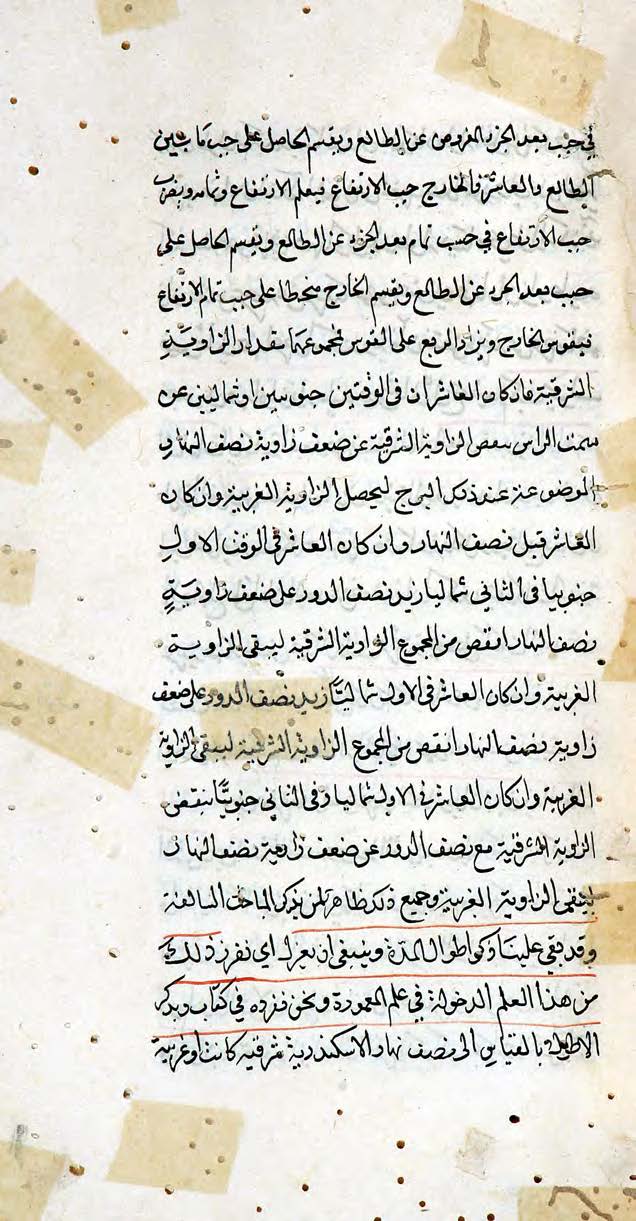 في جيب بعد الجزء المفروض عن الطالع ويقسم الحاصل على جيب ما بين
الطالع والعاشر فالخارج جيب الارتفاع فيعلم الارتفاع وتمامه ويضرب
جيب الارتفاع في جيب تمام بعد الجزء عن الطالع ويقسم الحاصل على
جيب بعد الجزء عن الطالع ويقسم الخارج منحطا على جيب تمام الارتفاع
فيقوس الخارج ويزاد الربع على القوس فمجموعهما مقدار الزاوية
الشرقية فان كان العاشران في الوقتين جنوبيين او شماليين عن
سمت الراس ينقص الزاوية الشرقية عن ضعف زاوية نصف النهار
الموضوعة عند ذلك البرج ليحصل الزاوية الغربية وان كان
العاشر قبل نصف النهار وان كان العاشر في الوقت الاول
جنوبيا في الثاني شماليا زيد نصف الدور على ضعف زاوية
نصف النهار انقص من المجموع الزاوية الشرقية ليبقى الزاوية
الغربية وان كان العاشر في الاول شماليا زيد نصف الدور على ضعف
زاوية نصف النهار انقص من المجموع الزاوية الشرقية ليبقى الزاوية
الغربية وان كان العاشر في الاول شماليا وفي الثاني جنوبيا ينقص
الزاوية الشرقية مع نصف الدور عن ضعف زاوية نصف النهار
ليبقى الزاوية الغربية وجميع ذلك ظاهر لمن يذكر المباحث السالفة
وقد بقي علينا ذكر اطوال المدة وينبغي ان يعزل اي نفرز ذلك
من هذا العلم الدخولة في علم المعمورة ونحن نفرده في كتاب ويذكر
الاطوال بالقياس الى نصف نهار الاسكندرية شرقية كانت او غربية